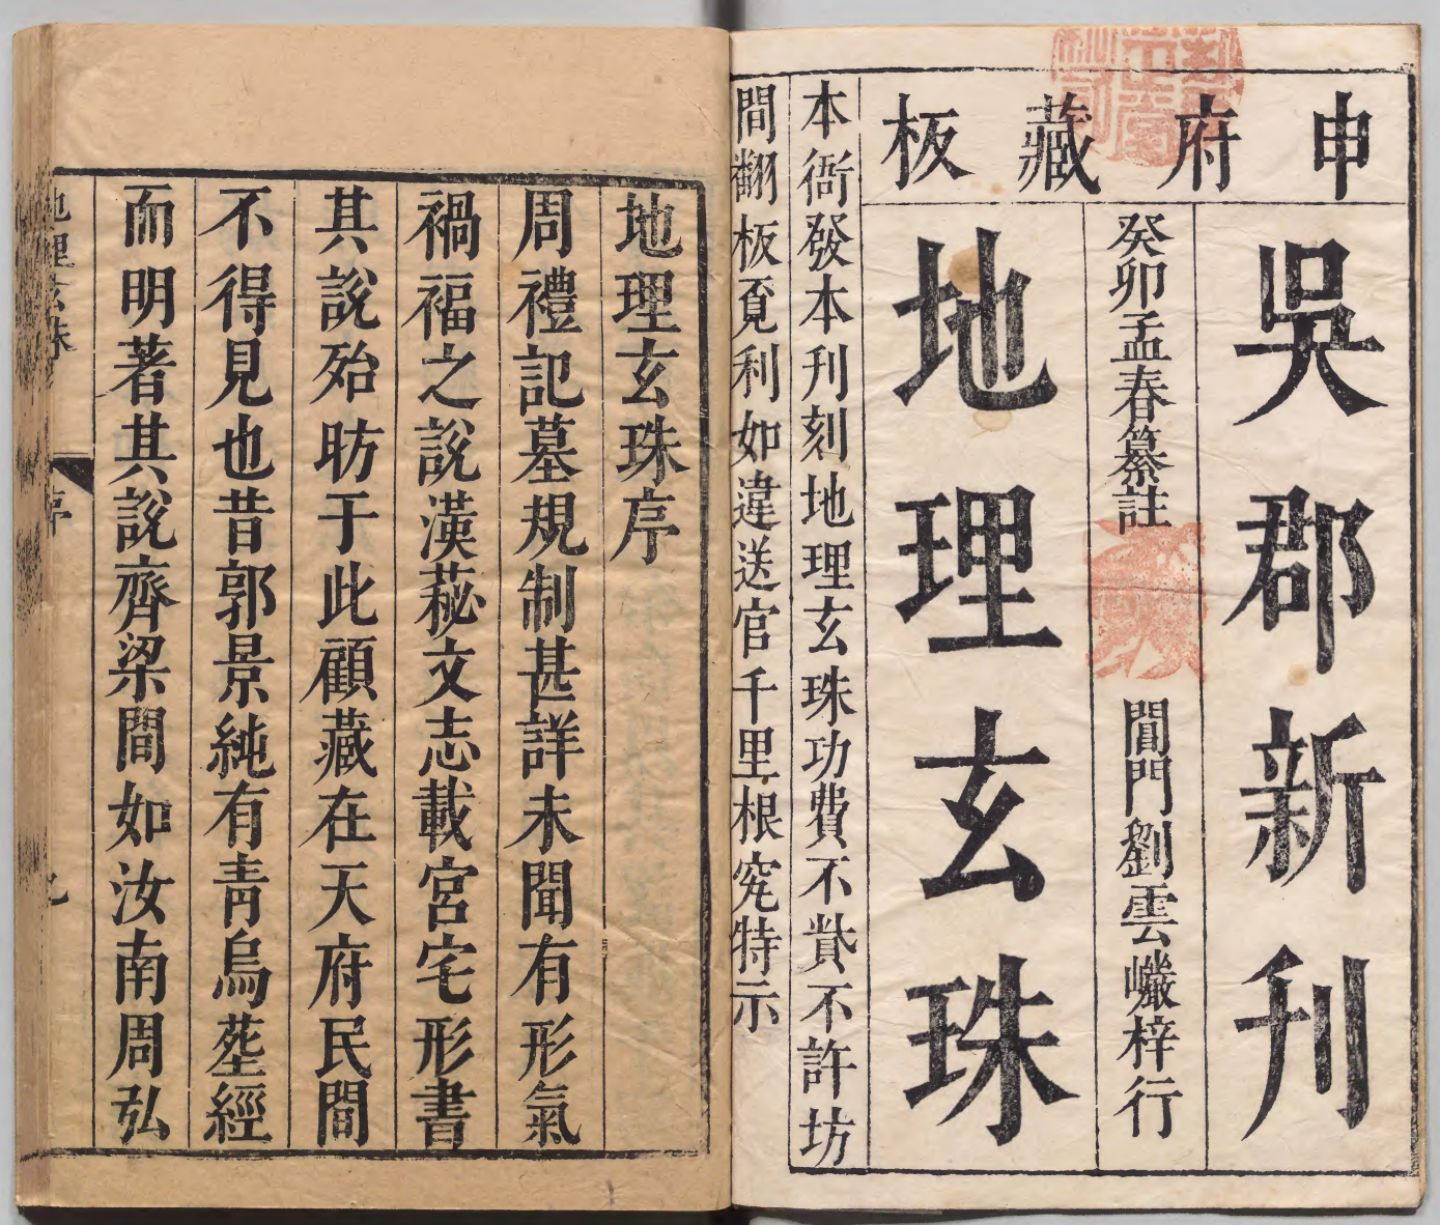 申府藏板
吳郡新刊
癸卯孟春纂註
閶門劉雲巗梓行
地理玄珠
本衙發本刊刻地理玄珠功費不貲不許坊
間翻板覔利如違送官千里根究特示
地理玄珠序
周禮記墓規制甚詳未聞有形氣
禍福之說漢藝文志載宮宅形書
其說殆昉于此顧藏在天府民間
不得見也昔郭景純有青烏塟經
而明著其說齊梁間如汝南周弘
地理玄珠
序